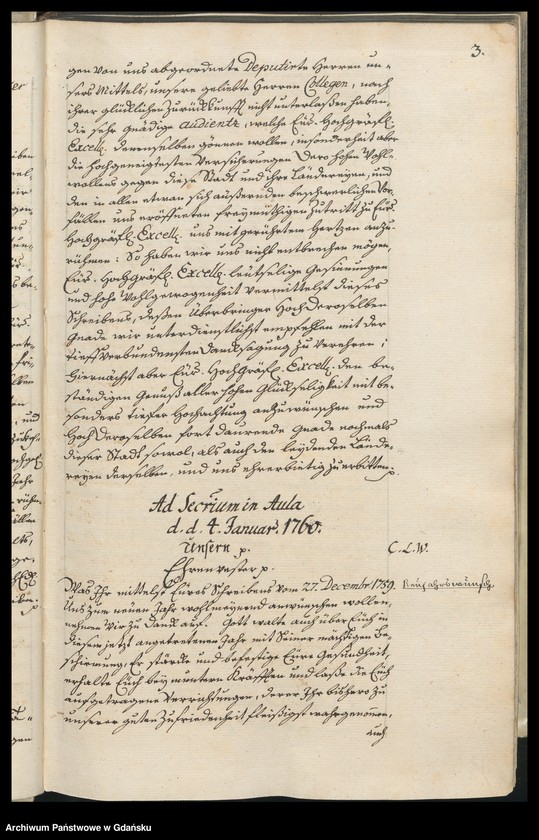 3.
gen von uns abgeordnete Deputirte Herren un-
sers Mittels, unsere geliebte Herren Collegen, nach
ihrer glücklichen Zurückkunfft nicht unterlaßen haben,
die sehr gnädige audientz, welche Eür. Hochgräfl.
Excell. derenselben gönnen wollen, insonderheit aber
die hochgeneigtesten Versicherungen Dero hohen Wohl-
wollens gegen diese Stadt und ihre Ländereyen, und
den in allen etwan sich äußernden beschwerlichen Vor-
fällen uns eröffneten freymüthigen Zutritt zu Eür.
Hochgräfl. Excell. uns mit gerührtem Hertzen anzu-
rühmen: So haben wir uns nicht entbrechen mögen,
Eür. Hochgräfl. Excell. leutselige Gesinnungen
und hohe Wohlgewogenheit vermittelst dieses
Schreibens, deßen Überbringer Hoch Deroselben
Gnade wir unterdienstlichst empfehlen mit der
tieffverbundensten Dancksagung zu verehren;
hiernächst aber Eür. Hochgräfl. Excell. den be-
ständigen Genuß aller hohen Glückseligkeit mit be-
sonders tiefer Hochachtung anzuwünschen und
Hoch Deroselben fort daurende Gnade nochmals
dieser Stadt sowol, als auch den leydenden Lände-
reyen derselben, und uns ehrerbietig zu erbitten.
Ad Secrium in Aula
d. d. 4. Januar. 1760.
Unsern p.
C. L. W.
Ehrenvester p.
Was Ihr mittelst Eures Schreibens vom 27. Decembr. 1759.
Neujahrswunsch.
Uns zum neuen Jahr wohlmeynend anwünschen wollen,
nehmen Wir zu Danck auf. Gott walte auch über Euch in
diesem jetzt angetretenen Jahr mit Seiner mächtigen Be-
schirmung; Er stärcke und befestige Eure Gesundheit,
erhalte Euch bey muntern Kräfften und laße die Euch
aufgetragene Verrichtungen, derer Ihr bishero zu
unserer guten Zufriedenheit fleißigst wahrgenommen,
auch
Archiwum Państwowe w Gdańsku